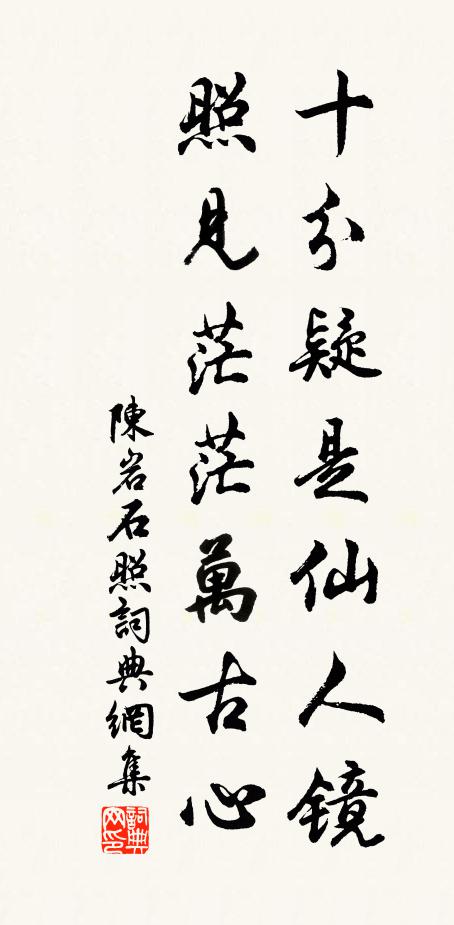 十分疑是仙人鏡
照見茫茫萬古心
陳岩石照詞典網集
詞典网印